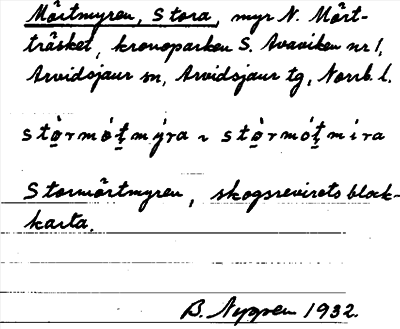 Mörtmyren, Stora, myr N. Mört-
träsket, kronoparken S. Avaviken nr 1,
Arvidsjaur sn, Arvidsjaur tg, Norrb. l.
stò̱rmóṯmýra ~ stò̱rmóṯmíra
Stormörtmyren, skogsrevirets block-
karta.
B. Nyppen 1932.